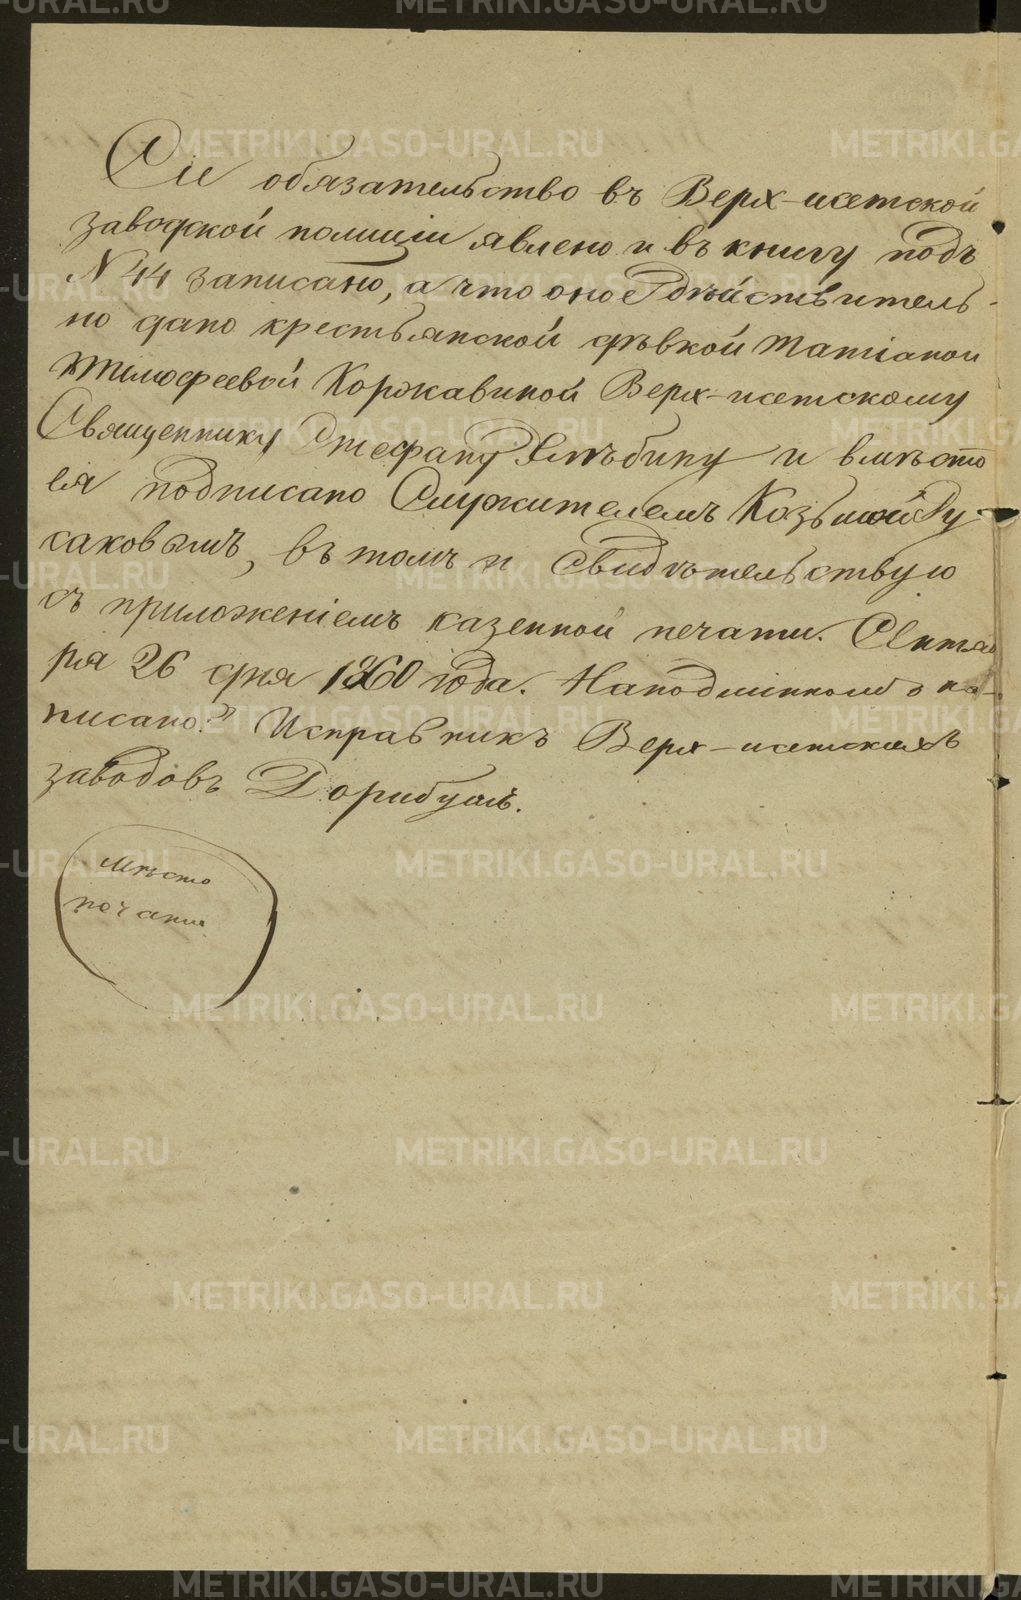 Сіе обязательство въ Верх-исетской
заводской полиціи явлено и въ книгу подъ
N 44 записано, а что оное дѣйствитель-
но дано крестьянской дѣвкой Татіаной
Тимофеевой Коржавиной Верх-исетскому
Священнику Стефану Хлѣбину и вмѣсто
ея подписано Служителемъ Козьмой Ру-
саковымъ, въ томъ и Свидѣтельствую
съ приложеніемъ казенной печати. Сентяб
ря 26 дня 1860 года. На подлинномъ на-
писано: Исправникъ Верх-исетскихъ
заводовъ
мѣсто
печати